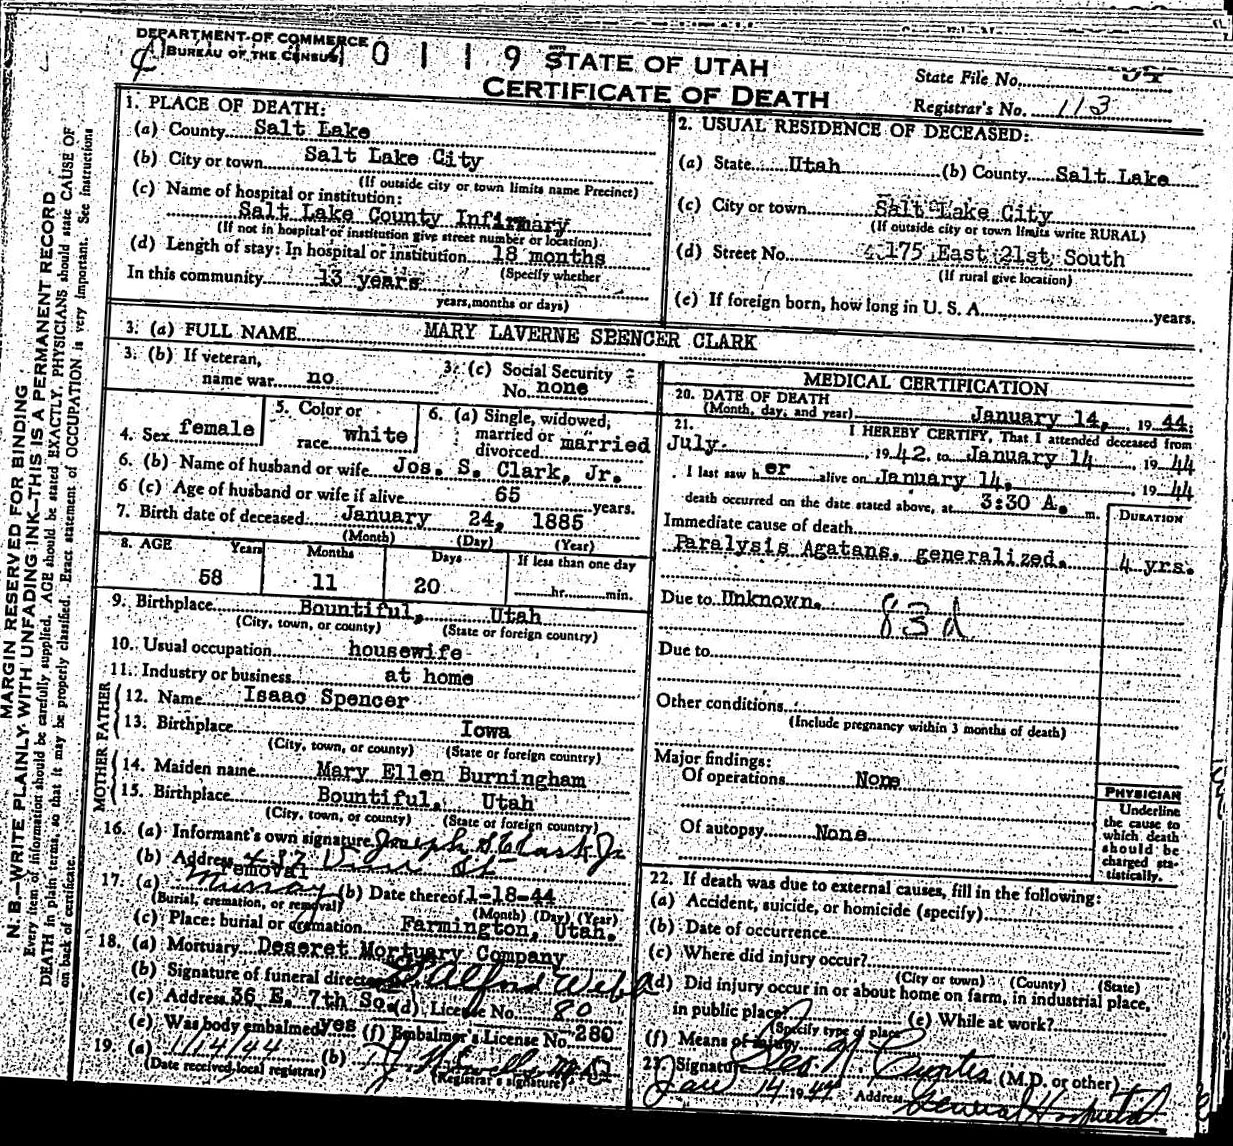 DEPARTMENT OF COMMERCE
BUREAU OF THE CENSUS
1 0 1 1 9
STATE OF UTAH
CERTIFICATE OF DEATH
State File No.
Registrar's No. 113
MARGIN RESERVED FOR BINDING
N. B.—WRITE PLAINLY WITH UNFADING INK—THIS IS A PERMANENT RECORD
Every item of information should be carefully supplied. AGE should be stated EXACTLY. PHYSICIANS should state CAUSE OF
DEATH in plain terms, so that it may be properly classified. Exact statement of OCCUPATION is very important. See instructions
on back of certificate.
1. PLACE OF DEATH:
(a) County Salt Lake
(b) City or town Salt Lake City
(If outside city or town limits name Precinct)
(c) Name of hospital or institution:
Salt Lake County Infirmary
(If not in hospital or institution give street number or location)
(d) Length of stay: In hospital or institution 18 months
(Specify whether
In this community 13 years
years, months or days)
2. USUAL RESIDENCE OF DECEASED:
(a) State Utah (b) County Salt Lake
(c) City or town Salt Lake City
(If outside city or town limits write RURAL)
(d) Street No. 175 East 21st South
(If rural give location)
(e) If foreign born, how long in U. S. A. years.
3. (a) FULL NAME MARY LAVERNE SPENCER CLARK
3. (b) If veteran,
name war no
3. (c) Social Security
No. none
4. Sex female
5. Color or
race white
6. (a) Single, widowed,
married or
divorced married
6. (b) Name of husband or wife Jos. S. Clark, Jr.
6 (c) Age of husband or wife if alive 65 years.
7. Birth date of deceased January 24, 1885
(Month) (Day) (Year)
8. AGE Years Months Days If less than one day
58 11 20 hr. min.
9. Birthplace Bountiful, Utah
(City, town, or county) (State or foreign country)
10. Usual occupation housewife
11. Industry or business at home
FATHER
12. Name Isaac Spencer
13. Birthplace Iowa
(City, town, or county) (State or foreign country)
MOTHER
14. Maiden name Mary Ellen Burningham
15. Birthplace Bountiful, Utah
(City, town, or county) (State or foreign country)
16. (a) Informant's own signature Joseph S Clark Jr
(b) Address St
removal
17. (a) Murray (b) Date thereof 1-18-44
(Burial, cremation, or removal) (Month) (Day) (Year)
(c) Place: burial or cremation Farmington, Utah.
18. (a) Mortuary Deseret Mortuary Company
(b) Signature of funeral director
(c) Address 36 E. 7th So. (d) License No. 80
(e) Was body embalmed yes (f) Embalmer's License No. 280
19. (a) 1/14/44 (b)
(Date received local registrar) (Registrar's signature)
MEDICAL CERTIFICATION
20. DATE OF DEATH
(Month, day, and year) January 14, 19 44.
21. I HEREBY CERTIFY, That I attended deceased from
July , 19 42, to January 14 , 19 44
I last saw h er alive on January 14, , 19 44
death occurred on the date stated above, at 3:30 A. m.
DURATION
Immediate cause of death
Paralysis Agatans. generalized. 4 yrs.
Due to Unknown. 83d
Due to
Other conditions
(Include pregnancy within 3 months of death)
Major findings:
Of operations None
Of autopsy None
PHYSICIAN
Underline
the cause to
which death
should be
charged sta-
tistically.
22. If death was due to external causes, fill in the following:
(a) Accident, suicide, or homicide (specify)
(b) Date of occurrence
(c) Where did injury occur?
(City or town) (County) (State)
(d) Did injury occur in or about home on farm, in industrial place,
in public place? (e) While at work?
(Specify type of place)
(f) Means of injury
23. Signature (M.D. or other)
Jan 14 1944 Address General Hospital